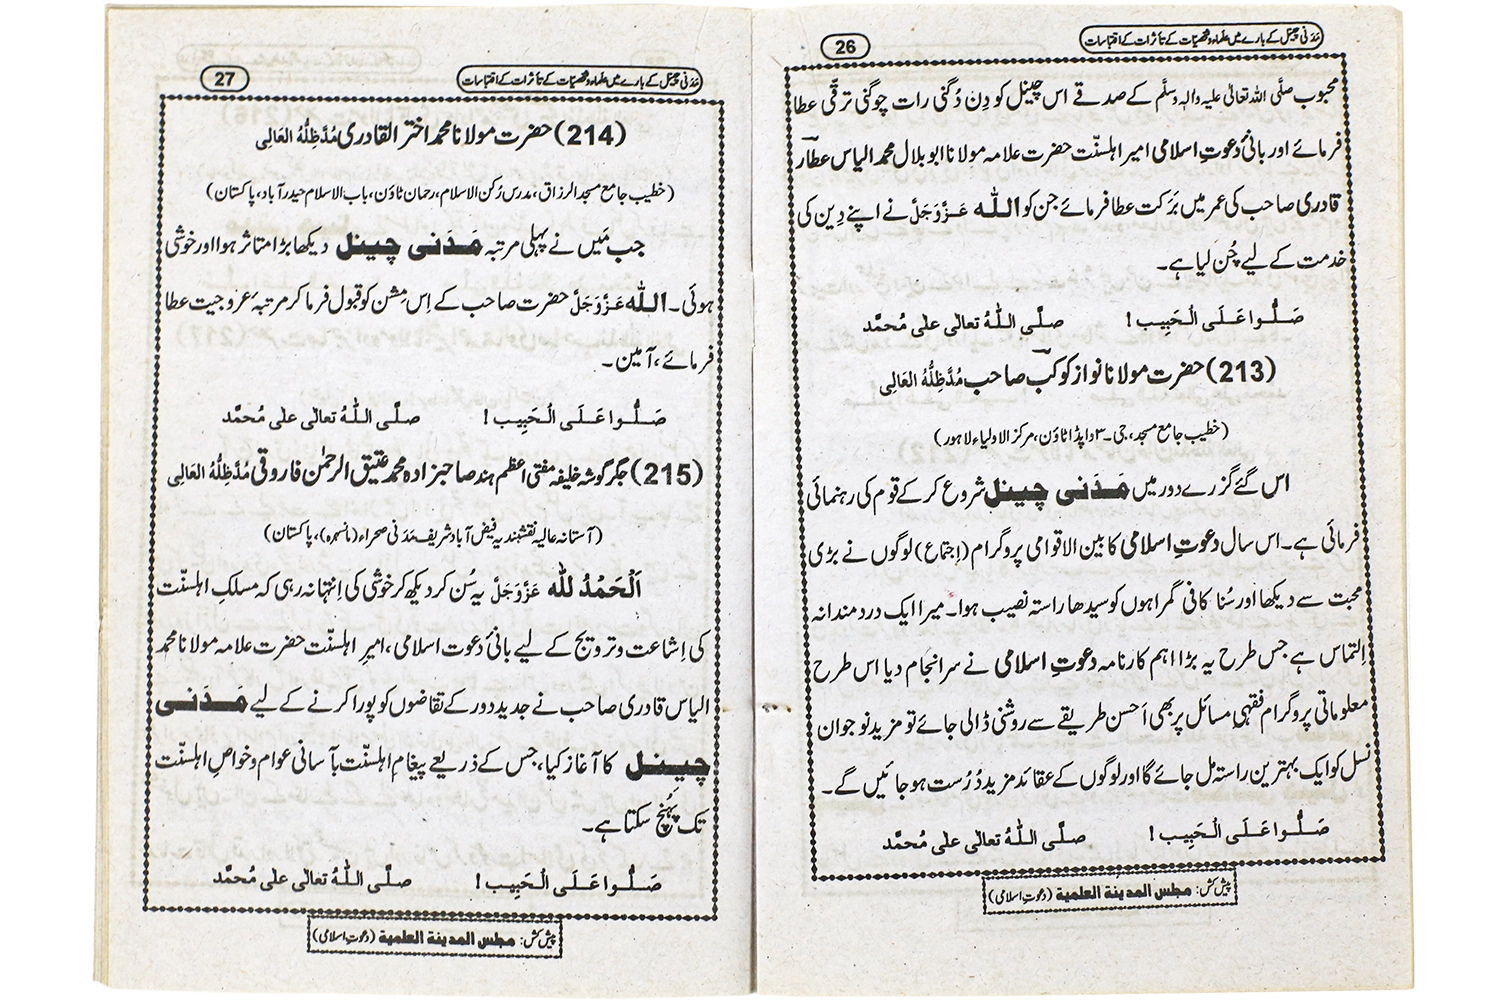 مَدَنی چینل کے بارے میں علماء و شخصیّات کے تأثرات کے اقتباسات
26
محبوب صلَّی اللہ تعالیٰ علیہ والہٖ وسلَّم کے صدقے اس چینل کو دِن دُگنی رات چوگنی ترقّی عطا
فرمائے اور بانیٔ دعوتِ اسلامی امیر اہلسنّت حضرت علامہ مولانا ابو بلال محمد الیاس عطّار
قادری صاحب کی عمر میں بَرَکت عطا فرمائے جن کو اللہ عَزَّوَجَلَّ نے اپنے دِین کی
خدمت کے لیے چُن لیا ہے۔
صَلُّوا عَلَی الْحَبِیب! صلَّی اللّٰہُ تعالٰی علٰی مُحمَّد
(213) حضرت مولانا نواز کوکبؔ صاحب مُدَّظِلُّہُ العَالِی
(خطیب جامع مسجد، جی۔۳ واپڈا ٹاؤن، مرکز الاولیاء لاہور)
اس گئے گزرے دور میں مَدَنی چینل شروع کر کے قوم کی رہنمائی
فرمائی ہے۔ اس سال دعوتِ اسلامی کا بین الاقوامی پروگرام (اِجتماع) لوگوں نے بڑی
محبت سے دیکھا اور سُنا کافی گمراہوں کو سیدھا راستہ نصیب ہوا۔ میرا ایک دردمندانہ
اِلتماس ہے جس طرح یہ بڑا اہم کارنامہ دعوتِ اسلامی نے سرانجام دیا اس طرح
معلوماتی پروگرام فقہی مسائل پر بھی اَحسن طریقے سے روشنی ڈالی جائے تو مزید نوجوان
نسل کو ایک بہترین راستہ مل جائے گا اور لوگوں کے عقائد مزید دُرُست ہو جائیں گے۔
صَلُّوا عَلَی الْحَبِیب! صلَّی اللّٰہُ تعالٰی علٰی مُحمَّد
پیش کش: مجلس المدینۃ العلمیۃ (دعوتِ اسلامی)
مَدَنی چینل کے بارے میں علماء و شخصیّات کے تأثرات کے اقتباسات
27
(214) حضرت مولانا محمد اختر القادری مُدَّظِلُّہُ العَالِی
(خطیب جامع مسجد الرزاق، مدرس رُکن الاسلام، رحمان ٹاؤن، باب الاسلام حیدر آباد، پاکستان)
جب مَیں نے پہلی مرتبہ مَدَنی چینل دیکھا بڑا متاثر ہوا اور خوشی
ہوئی۔ اللہ عَزَّوَجَلَّ حضرت صاحب کے اِس مِشن کو قبول فرما کر مرتبۂ عروجیت عطا
فرمائے، آمین۔
صَلُّوا عَلَی الْحَبِیب! صلَّی اللّٰہُ تعالٰی علٰی مُحمَّد
(215) جگر گوشہ خلیفہ مفتی اعظم ہند صاحبزادہ محمد عتیق الرحمٰن فاروقی مُدَّظِلُّہُ العَالِی
(آستانہ عالیہ نقشبندیہ فیض آباد شریف مَدَنی صحراء (مانسہرہ)، پاکستان)
اَلْحَمْدُ للّٰہ عَزَّوَجَلَّ یہ سُن کر دیکھ کر خوشی کی اِنتہا نہ رہی کہ مسلکِ اہلسنّت
کی اِشاعت و ترویج کے لیے بانیٔ دعوت اسلامی، امیرِ اہلسنّت حضرت علامہ مولانا محمد
الیاس قادری صاحب نے جدید دور کے تقاضوں کو پورا کرنے کے لیے مَدَنی
چینل کا آغاز کیا، جس کے ذریعے پیغامِ اہلسنّت بآسانی عوام و خواصِ اہلسنّت
تک پہُنچ سکتا ہے۔
صَلُّوا عَلَی الْحَبِیب! صلَّی اللّٰہُ تعالٰی علٰی مُحمَّد
پیش کش: مجلس المدینۃ العلمیۃ (دعوتِ اسلامی)